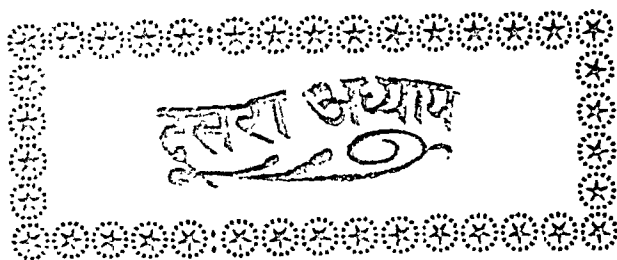 दूसरा अध्याय